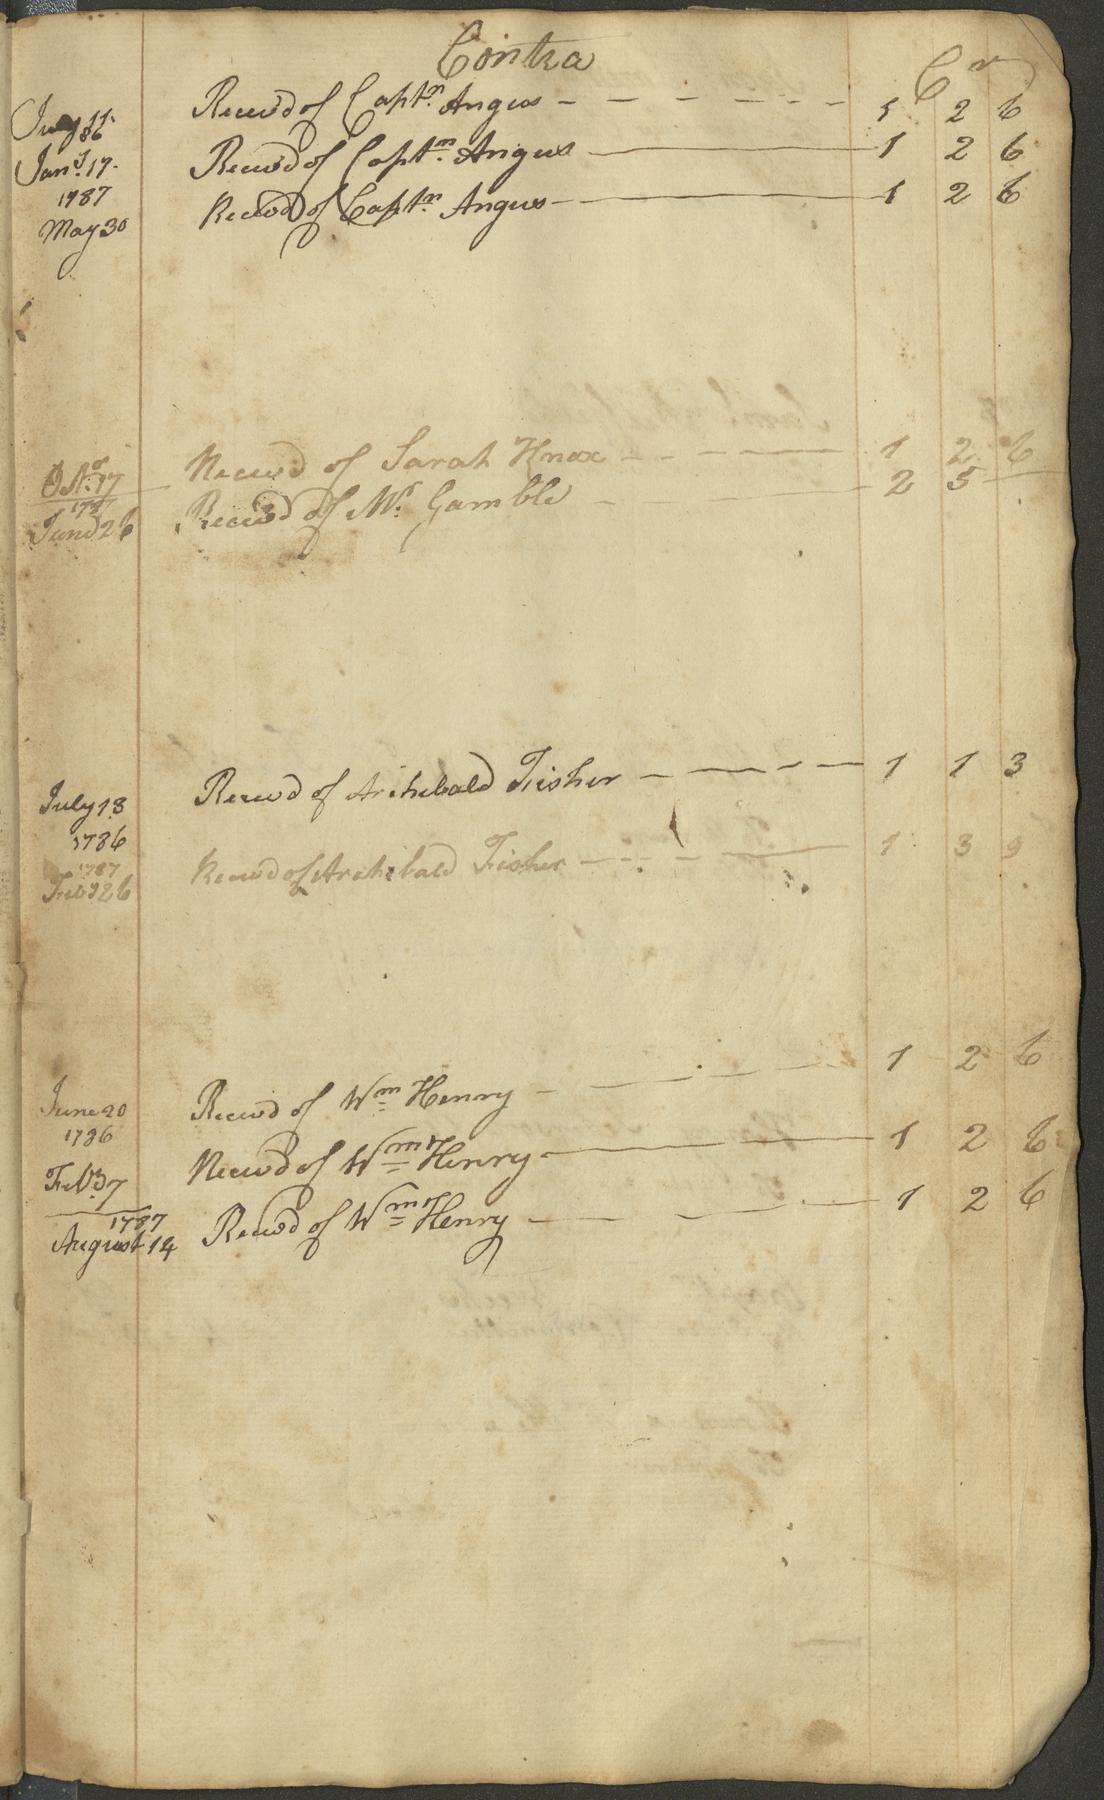 Contra Cr
July 11 86 Receivd of Captn. Angus - - - - - - - 1 2 6
Jany. 17. Receivd of Captn. Angus 1 2 6
1787
May 30 Receivd of Captn. Angus 1 2 6
Octr. 17 Receivd of Sarah Knox - - - - 1 2 6
June 26 Receivd of Mr. Gamble - 2 5 -
July 13 Receivd of Archibald Fisher - - - - 1 1 3
1786
1787
Feby 26 Receivd of Archibald Fisher - - - - 1 3 9
June 20 Receivd of Wm Henry - - - - 1 2 6
1786
Feb. 7 Receivd of Wm Henry 1 2 6
1787
August 14 Receivd of Wm Henry - - - - 1 2 6